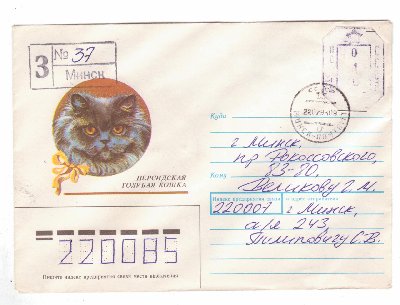 З
№ 37
Минск
0
1
0
ПЕРСИДСКАЯ
ГОЛУБАЯ КОШКА
Куда
г. Минск,
пр. Рокоссовского,
83-80,
Кому
Великову Г. М.
Индекс предприятия связи и адрес отправителя
220007 г. Минск,
а/я 243,
Пилиповичу С. В.
220085
Пишите индекс предприятия связи места назначения